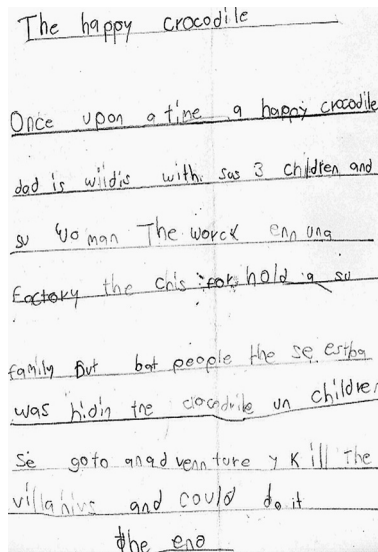 The happy crocodile
Once upon a time a happy crocodile
dad is wildis with sus 3 children and
su woman The worck enn una
Factory the chis for hold a su
family But bat people the se estba
was hidin the crocodrile un children
Se goto anadvennture y Kill The
villanius and could do it
the end